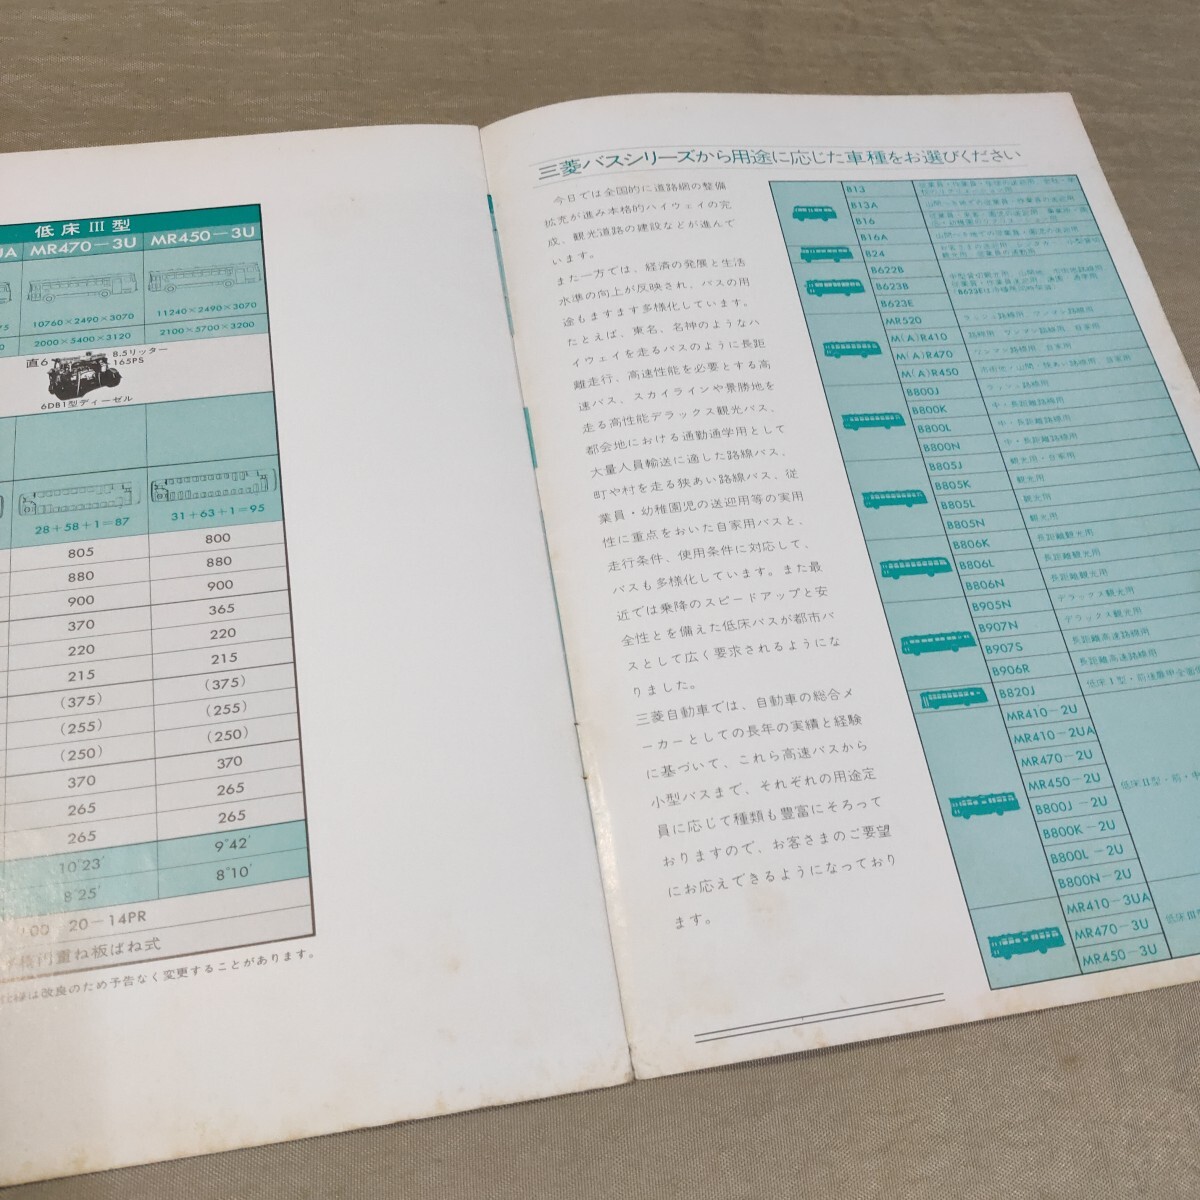 低床 III 型
UA MR470-3U MR450-3U
10760×2490×3070 11240×2490×3070
2000×5400×3120 2100×5700×3200
直6 8.5リッター
165PS
6DB1型ディーゼル
28+58+1=87 31+63+1=95
805 800
880 880
900 900
370 365
220 220
215 215
(375) (375)
(255) (255)
(250) (250)
370 370
265 265
265 265
10°23′ 9°42′
8°25′ 8°10′
20-14PR
重ね板ばね式
は改良のため予告なく変更することがあります。
三菱バスシリーズから用途に応じた車種をお選びください
今日では全国的に道路網の整備
拡充が進み本格的ハイウェイの完
成、観光道路の建設などが進んで
います。
また一方では、経済の発展と生活
水準の向上が反映され、バスの用
途もますます多様化しています。
たとえば、東名、名神のようなハ
イウェイを走るバスのように長距
離走行、高速性能を必要とする高
速バス、スカイラインや景勝地を
走る高性能デラックス観光バス、
都会地における通勤通学用として
大量人員輸送に適した路線バス、
町や村を走る狭あい路線バス、従
業員・幼稚園児の送迎用等の実用
性に重点をおいた自家用バスと、
走行条件、使用条件に対応して、
バスも多様化しています。また最
近では乗降のスピードアップと安
全性とを備えた低床バスが都市バ
スとして広く要求されるようにな
りました。
三菱自動車では、自動車の総合メ
ーカーとしての長年の実績と経験
に基づいて、これら高速バスから
小型バスまで、それぞれの用途定
員に応じて種類も豊富にそろって
おりますので、お客さまのご要望
にお応えできるようになっており
ます。
B13
B13A
B16
B16A
B24
B622B
B623B
B623E
MR520
M(A)R410
M(A)R470
M(A)R450
B800J ラッシュ路線用
B800K 中・長距離路線用
B800L 中・長距離路線用
B800N 中・長距離路線用
B805J 観光用・自家用
B805K 観光用
B805L 観光用
B805N 観光用
B806K 長距離観光用
B806L 長距離観光用
B806N 長距離観光用
B905N デラックス観光用
B907N デラックス観光用
B907S 長距離高速路線用
B906R 長距離高速路線用
B820J 低床I型・前後扉甲全面低
MR410-2U
MR410-2UA
MR470-2U
MR450-2U 低床II型・前・中
B800J-2U
B800K-2U
B800L-2U
B800N-2U
MR410-3UA
MR470-3U 低床III型
MR450-3U